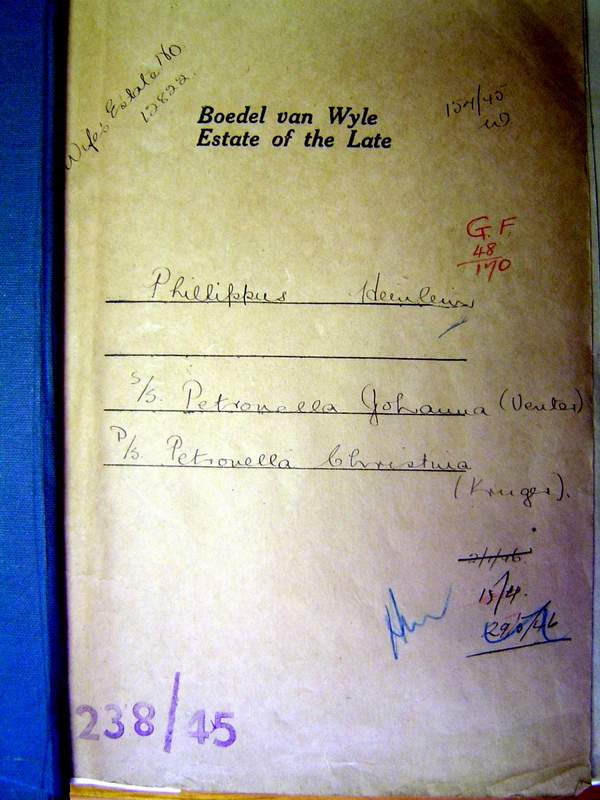 Wife's Estate No
12822.
154/45
Boedel van Wyle
Estate of the Late
G. F.
48
170
Phillippus
S/S. Petronella Johanna (Venter)
P/S. Petronella Christina
(Kruger).
2/1/46
15/4.
238/45